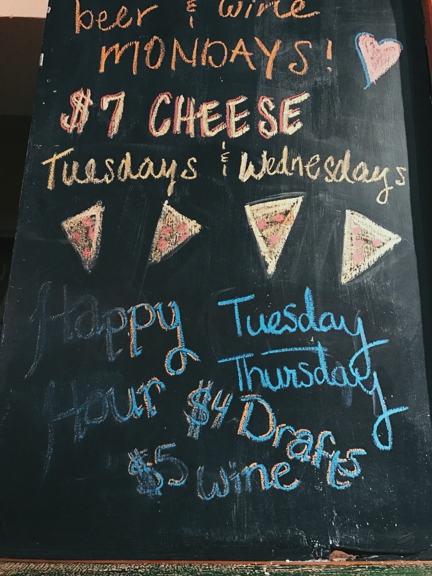 beer & wine
MONDAYS!
$7 CHEESE
Tuesdays & Wednesdays
Happy Tuesday
Thursday
Hour $4 Drafts
$5 wine